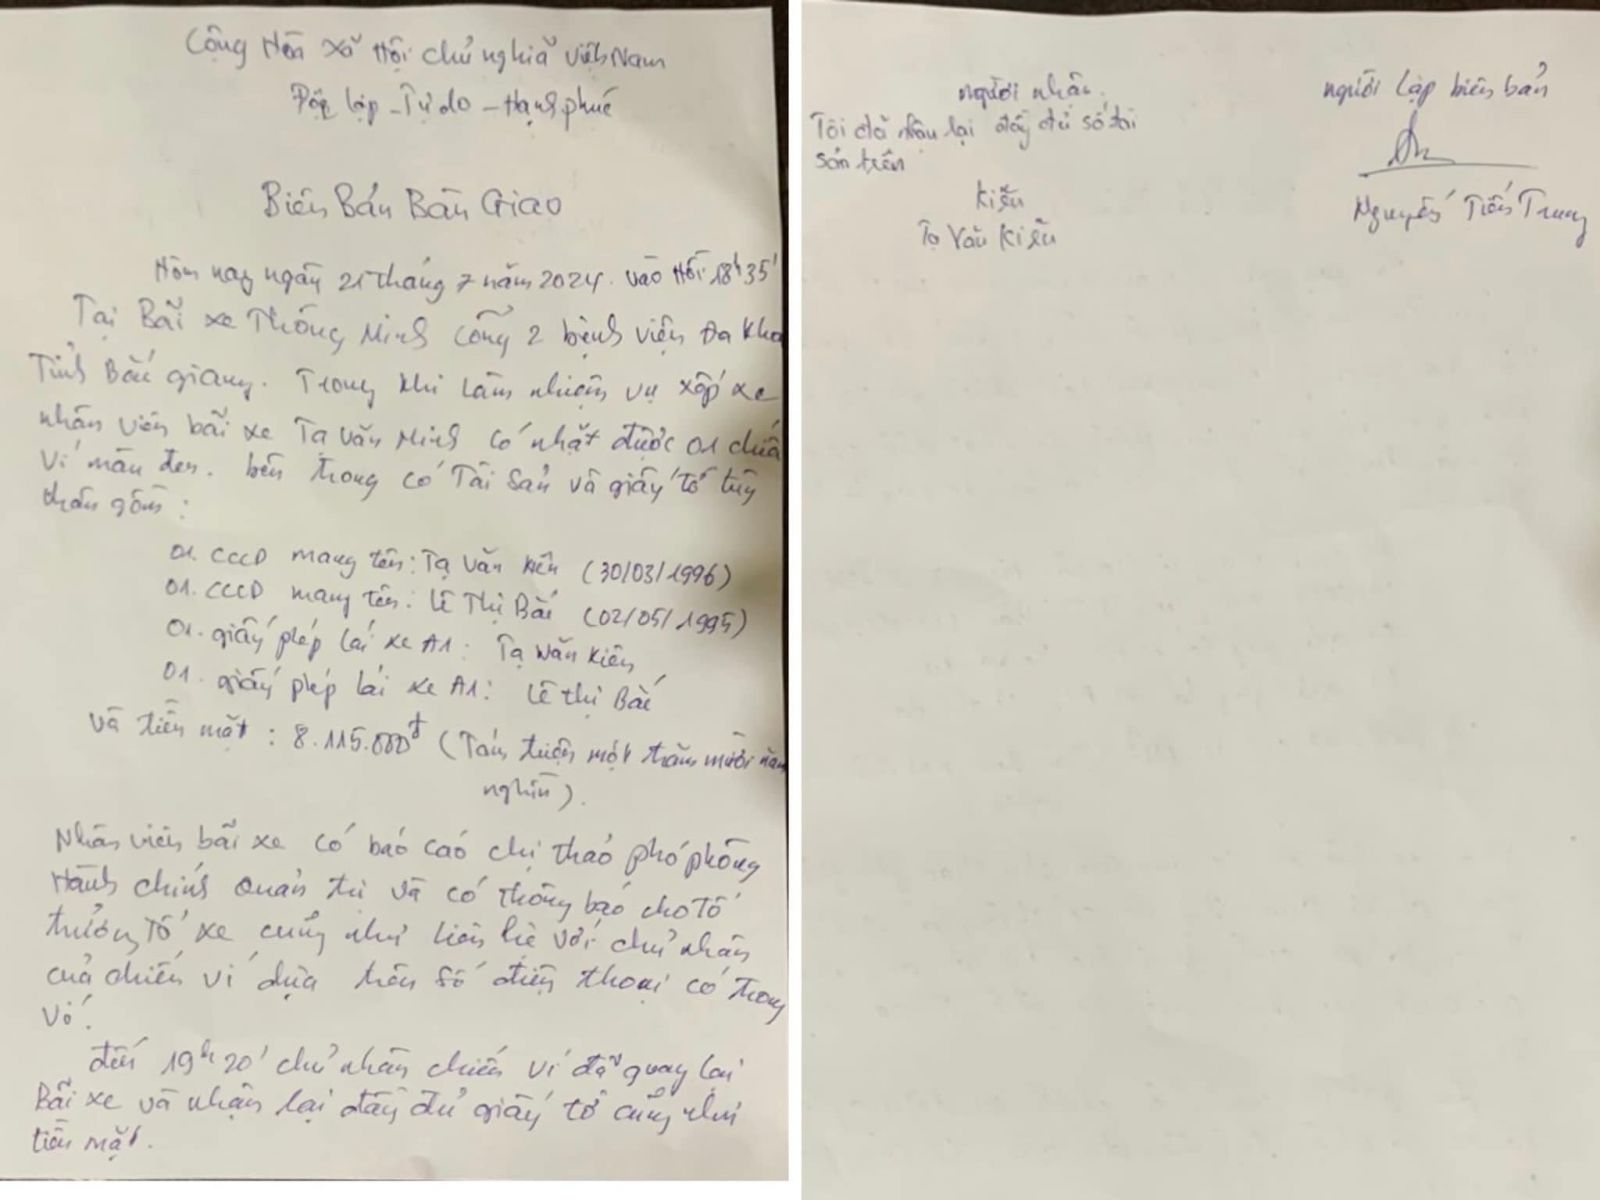 Cộng Hòa xã Hội chủ nghĩa Việt Nam
Độc lập - Tự do - Hạnh phúc
Biên Bản Bàn Giao
Hôm nay ngày 21 tháng 7 năm 2024. vào Hồi 18h35'
Tại Bãi xe Thông Minh Cổng 2 bệnh viện Đa Khoa
Tỉnh Bắc giang. Trong khi làm nhiệm vụ xếp xe
nhân viên bãi xe Tạ Văn Minh có nhặt được 01 chiếc
Ví màu đen. bên trong có Tài sản và giấy tờ tùy
thân gồm:
01. CCCD mang tên: Tạ Văn Kiên (30/03/1996)
01. CCCD mang tên: Lê Thị Bắc (02/05/1995)
01. giấy phép lái xe A1: Tạ Văn Kiên
01. giấy phép lái xe A1: Lê thị Bắc
Và tiền mặt: 8.115.000đ (Tám triệu một trăm mười năm
nghìn).
Nhân viên bãi xe có báo cáo chị Thảo phó phòng
Hành chính Quản trị và có thông báo cho Tổ
trưởng Tổ xe cũng như liên hệ với chủ nhân
của chiếc ví dựa trên số điện thoại có trong
Ví.
đến 19h20' chủ nhân chiếc ví đã quay lại
Bãi xe và nhận lại đầy đủ giấy tờ cũng như
tiền mặt.
người nhận.
Tôi đã nhận lại đầy đủ số tài
sản trên
Kiên
Tạ Văn Kiên
người lập biên bản
Nguyễn Tiến Trung